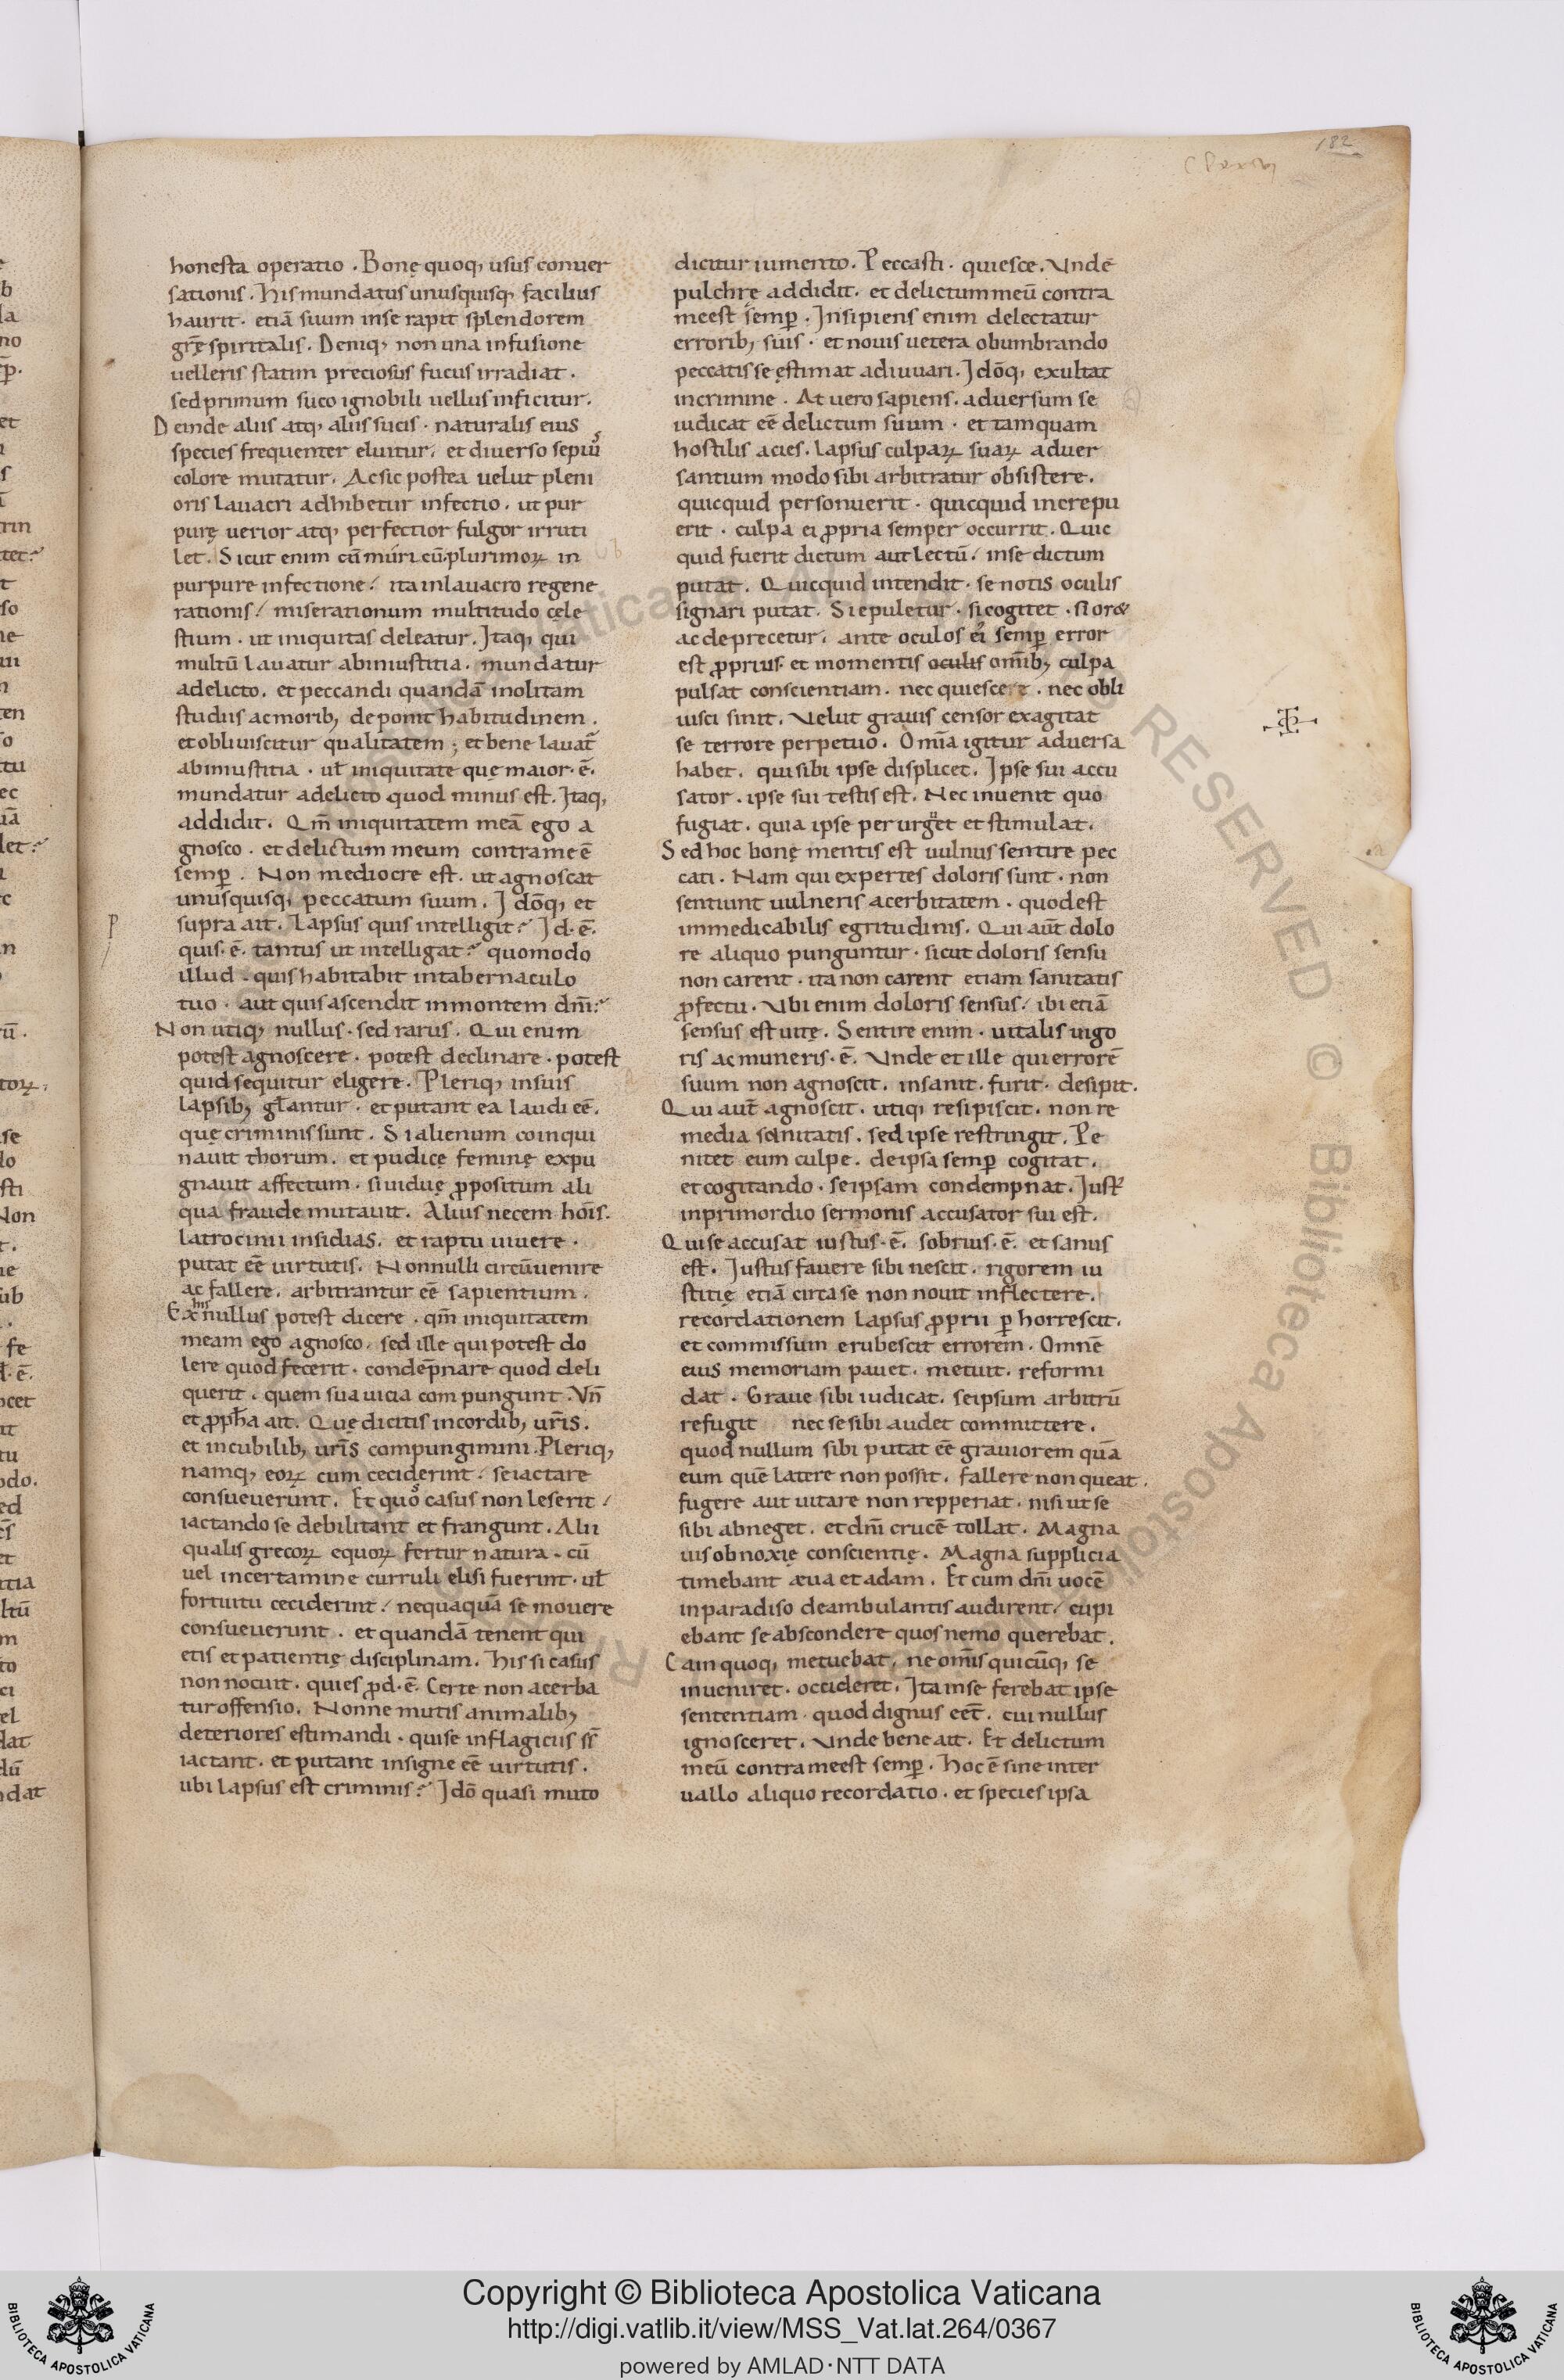 182
honesta operatio . Bonę quoq; usus conuer
sationis . His mundatus unusquisq; facilius
haurit . etiã suum inse rapit splendorem
gr̃ę spiritalis . Deniq; non una infusione
uelleris statim preciosus fucus irradiat .
sed primum suco ignobili uellus inficitur .
Deinde aliis atq; aliis sucis . naturalis eius
species frequenter eluitur . et diuerso sepiꝰ
colore mutatur . Ac sic postea uelut pleni
oris lauacri adhibetur infectio . ut pur
purę uerior atq; perfectior fulgor irruti
let . Sicut enim cũ múri cũ plurimoꝝ in
purpure infectione / ita inlauacro regene
rationis / miserationum multitudo cęle
stium . ut iniquitas deleatur . Itaq; qui
multũ lauatur abiniustitia . mundatur
adelicto . et peccandi quandã inolitam
studiis ac morib; deponit habitudinem .
et obliuiscitur qualitatem ; et bene lauat̃
abiniustitia . uł iniquitate quę maior . ē .
mundatur adelicto quod minus est . Itaq;
addidit . Qm̃ iniquitatem meã ego a
gnosco . et delictum meum contra me ē
semꝑ . Non mediocre est . ut agnoscat
unusquisq; peccatum suum . Idõq; et
supra ait . Lapsus quis intelligit? Id . ē .
quis . ē . tantus ut intelligat? quomodo
illud . quis habitabit intabernaculo
tuo . aut quis ascendit inmontem dñi?
Non utiq; nullus . sed rarus . Qui enim
potest agnoscere . potest declinare . potest
quid sequitur eligere . Pleriq; insuis
lapsib; głantur . et putant ea laudi eē .
quę criminis sunt . Si alienum coinqui
nauit thorum . et pudicę feminę expu
gnauit affectum . si uiduę ꝓpositum ali
qua fraude mutauit . Alius necem hoĩs .
latrocinii insidias . et raptu uiuere .
putat eē uirtutis . Nonnulli circũuenire
ac fallere . arbitrantur eē sapientium .
Ex his nullus potest dicere . qm̃ iniquitatem
meam ego agnosco . sed ille qui potest do
lere quod fecerit . condẽpnare quod deli
querit . quem sua uicia compungunt . Vñ
et ꝓpħa ait . Quę dicitis incordib; ur̃is .
et incubilib; ur̃is compungimini . Pleriq;
namq; eoꝝ cum ceciderint / se iactare
consueuerunt . Et quoꝰ casus non leserit /
iactando se debilitant et frangunt . Alii
qualis grecoꝝ equoꝝ fertur natura . cũ
uel incertamine curruli elisi fuerint . uł
fortuitu ceciderint / nequaquã se mouere
consueuerunt . et quandã tenent qui
etis et patientię disciplinam . His si casus
non nocuit . quies ꝓd . ē . Certe non acerba
tur offensio . Nonne mutis animalib;
deteriores estimandi . qui se inflagiciis sĩ
iactant . et putant insigne eē uirtutis .
ubi lapsus est criminis? Idõ quasi muto
dicitur iumento . Peccasti . quiesce . Vnde
pulchrę addidit . et delictum meũ contra
me est semꝑ . Insipiens enim delectatur
errorib; suis . et nouis uetera obumbrando
peccatis se ęstimat adiuuari . Idõq; exultat
incrimine . At uero sapiens . aduersum se
iudicat eē delictum suum . et tamquam
hostilis acies . lapsus culpaꝝ suaꝝ aduer
santium modo sibi arbitratur obsistere .
quicquid personuerit . quicquid increpu
erit . culpa ei ꝓpria semper occurrit . Quic
quid fuerit dictum aut lectũ / inse dictum
putat . Quicquid intendit . se notis oculis
signari putat . Si epuletur . si cogitet . si or&
ac deprecetur . ante oculos ei semꝑ error
est ꝓprius . et momentis oculis om̃ib; culpa
pulsat conscientiam . nec quiescere . nec obli
uisci sinit . Velut grauis censor exagitat
se terrore perpetuo . Om̃ia igitur aduersa
habet . qui sibi ipse displicet . Ipse sui accu
sator . ipse sui testis est . Nec inuenit quo
fugiat . quia ipse per urget et stimulat .
Sed hoc bonę mentis est uulnus sentire pec
cati . Nam qui expertes doloris sunt . non
sentiunt uulneris acerbitatem . quod est
immedicabilis egritudinis . Qui aũt dolo
re aliquo punguntur . sicut doloris sensu
non carent . ita non carent etiam sanitatis
ꝓfectu . Vbi enim doloris sensus / ibi etiã
sensus est uitę . Sentire enim . uitalis uigo
ris ac muneris . ē . Vnde et ille qui errorẽ
suum non agnoscit . insanit . furit . desipit .
Qui aut̃ agnoscit . utiq; resipiscit . non re
media sanitatis . sed ipse restringit . Pe
nitet eum culpe . de ipsa semꝑ cogitat .
et cogitando . se ipsam condempnat . Iust᷒
inprimordio sermonis accusator sui est .
Qui se accusat iustus . ē . sobrius . ē . et sanus
est . Iustus fauere sibi nescit . rigorem iu
stitię etiã circa se non nouit inflectere .
recordationem lapsus ꝓprii ꝑ horrescit .
et commissum erubescit errorem . Omnẽ
eius memoriam pauet . metuit . reformi
dat . Graue sibi iudicat . se ipsum arbitrũ
refugit nec se sibi audet committere .
quod nullum sibi putat eē grauiorem quã
eum quẽ latere non possit . fallere non queat .
fugere aut uitare non repperiat . nisi ut se
sibi abneget . et dñi crucẽ tollat . Magna
uis obnoxię conscientię . Magna supplicia
timebant æua et adam . Et cum dñi uocẽ
inparadiso deambulantis audirent / cupi
ebant se abscondere quos nemo querebat .
Cain quoq; metuebat , ne om̃is quicũq; se
inueniret . occideret . Ita inse ferebat ipse
sententiam . quod dignus eēt̃ . cui nullus
ignosceret . Vnde bene ait . Et delictum
meũ contra me est semꝑ . Hoc ē sine inter
uallo aliquo recordatio . et species ipsa
Copyright © Biblioteca Apostolica Vaticana
http://digi.vatlib.it/view/MSS_Vat.lat.264/0367
powered by AMLAD·NTT DATA